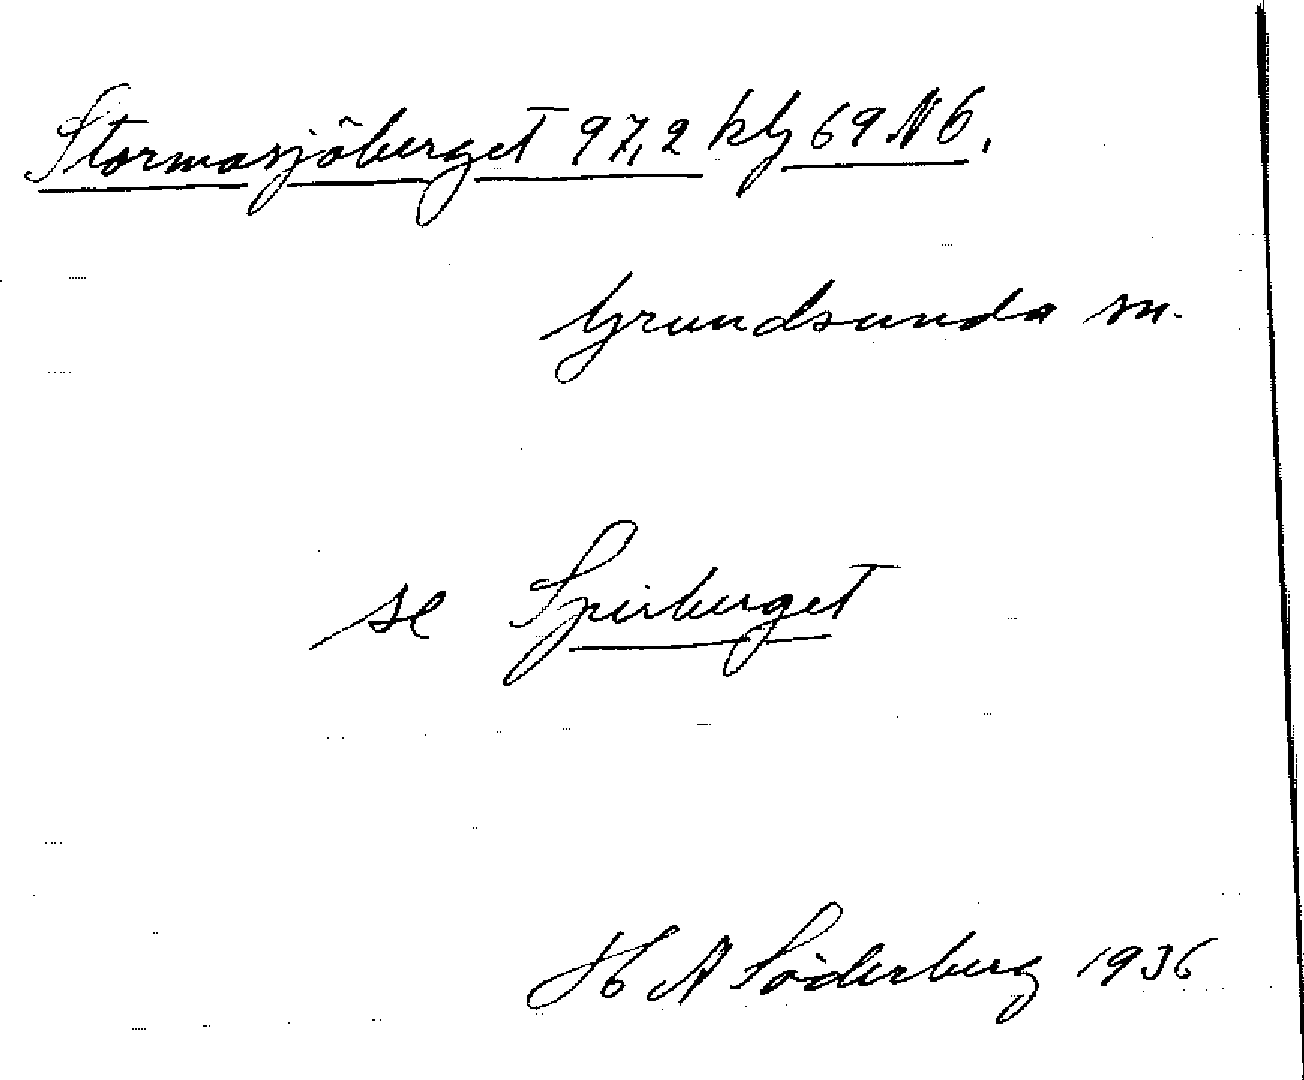 Stormasjöberget 97,2 klj 69 N6.
Grundsunda sn.
se Spirberget
H A Söderberg 1936